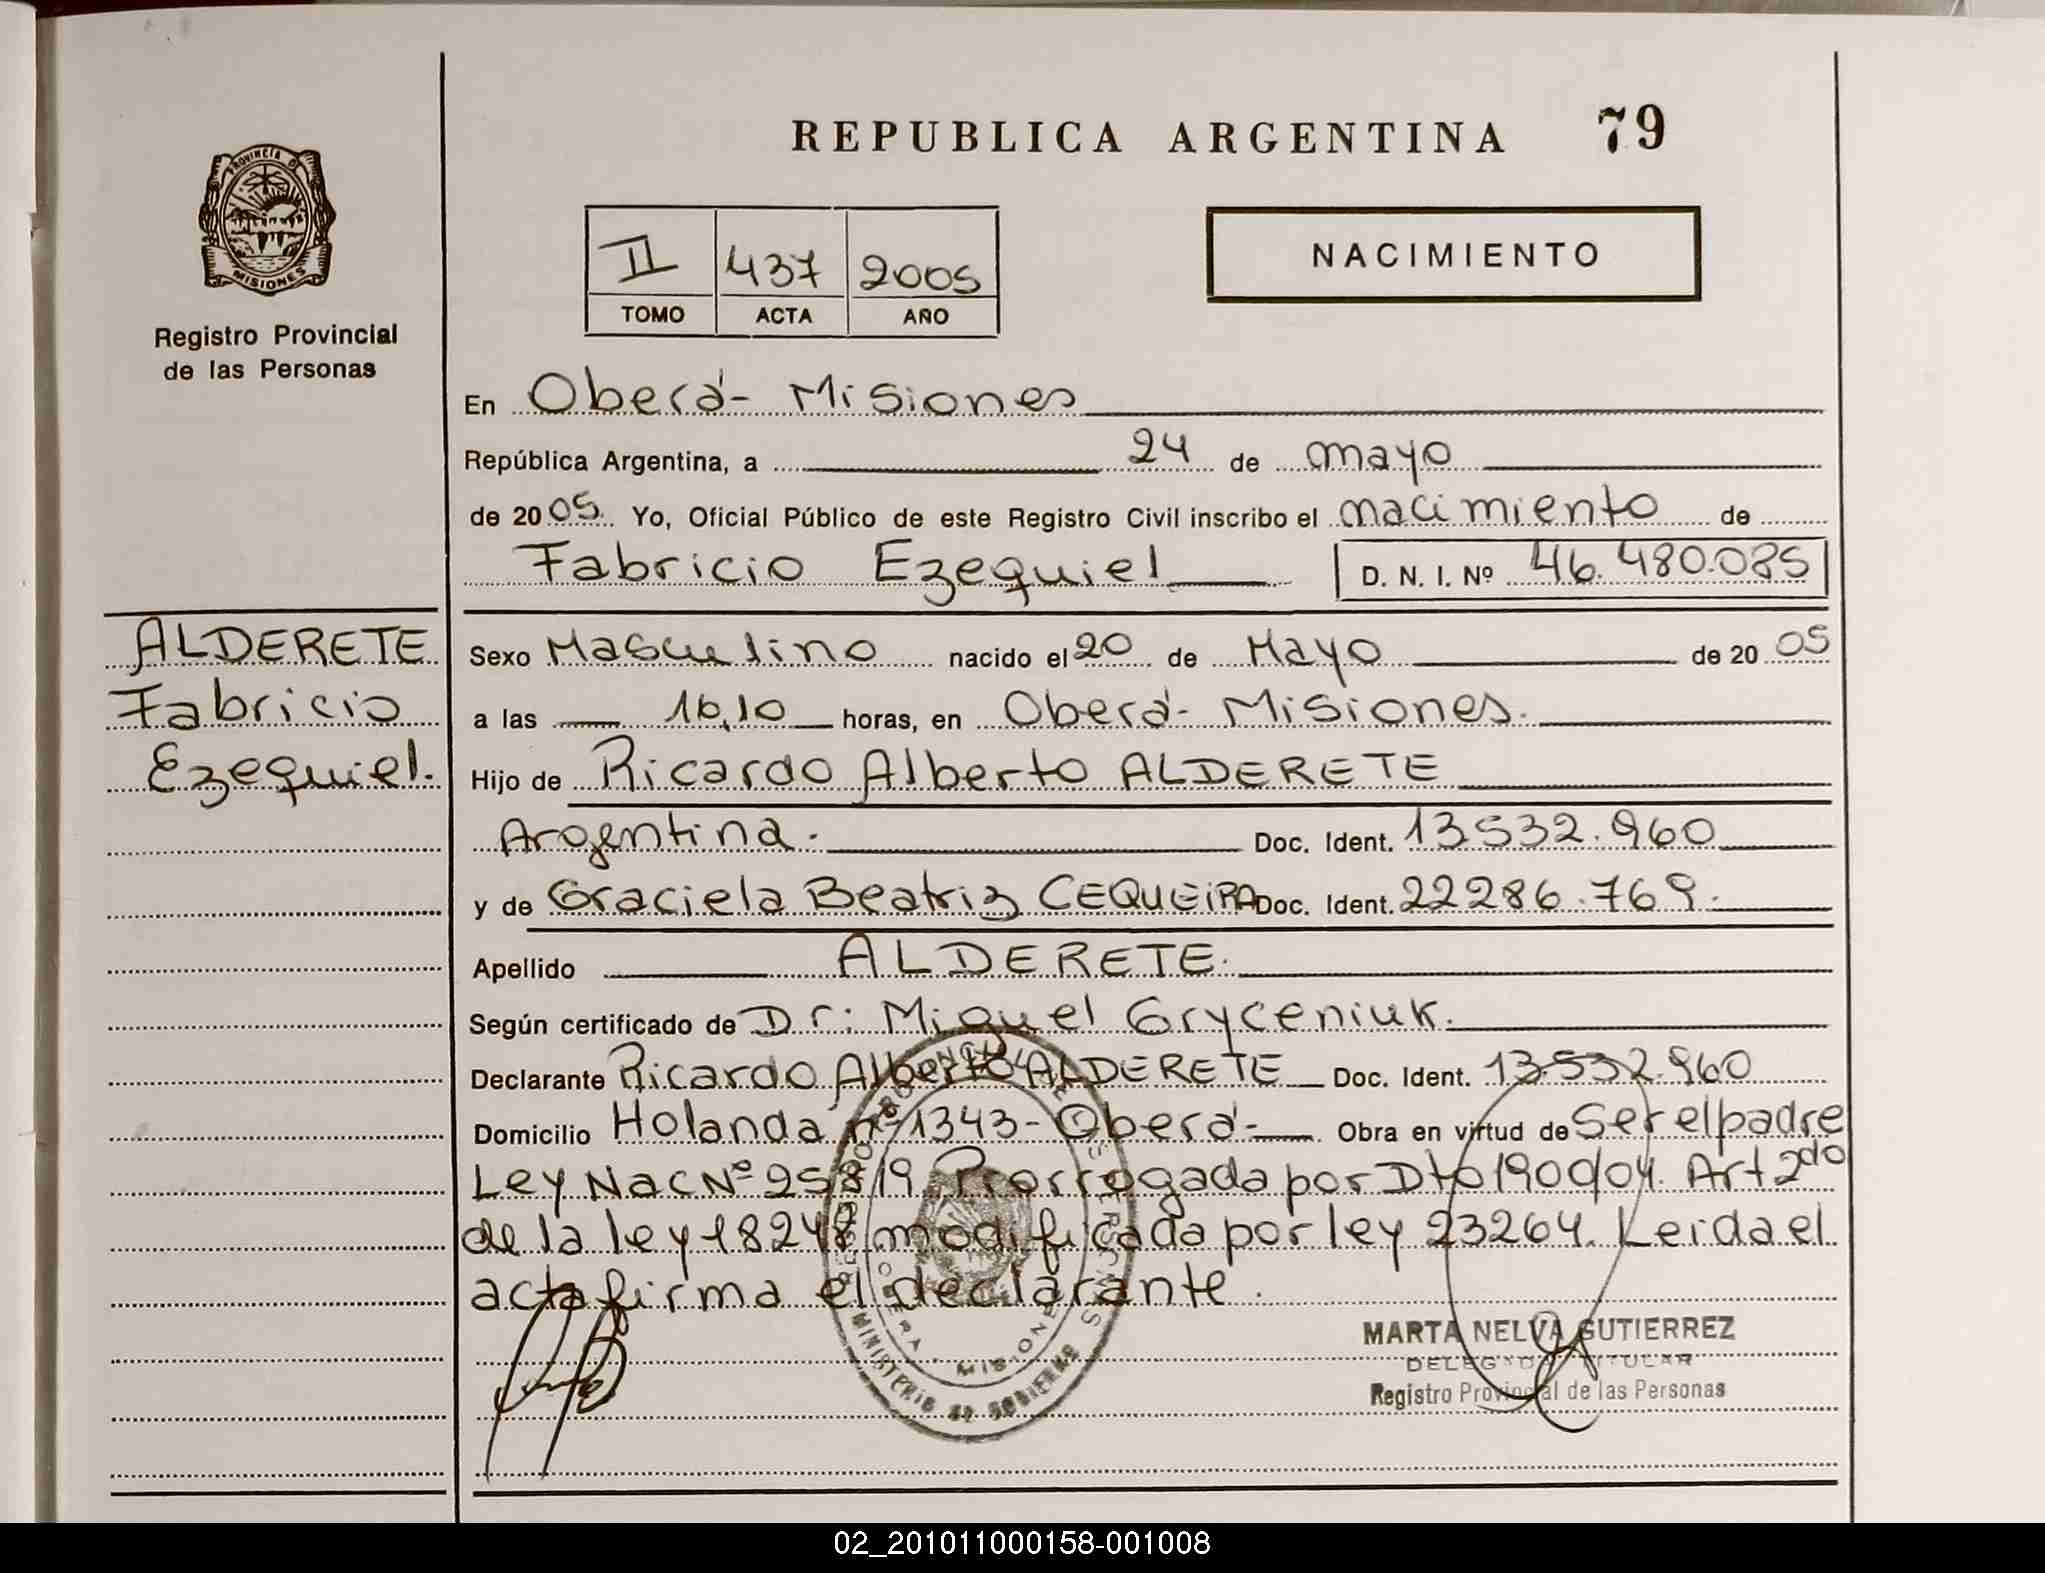 REPUBLICA ARGENTINA 79
PROVINCIA DE MISIONES
Registro Provincial
de las Personas
II 437 2005
TOMO ACTA AÑO
NACIMIENTO
En Oberá- Misiones
República Argentina, a 24 de mayo
de 2005. Yo, Oficial Público de este Registro Civil inscribo el nacimiento de
Fabricio Ezequiel D. N. I. Nº 46.480.085
ALDERETE
Fabricio
Ezequiel.
Sexo Masculino nacido el 20 de Mayo de 2005
a las 16,10 horas, en Oberá- Misiones.
Hijo de Ricardo Alberto ALDERETE
Argentina. Doc. Ident. 13532.960
y de Graciela Beatriz CEQUEIRA Doc. Ident. 22286.769.
Apellido ALDERETE.
Según certificado de Dr: Miguel Gryceniuk.
Declarante Ricardo Alberto ALDERETE Doc. Ident. 13532.960
Domicilio Holanda nº 1343- Oberá- Obra en virtud de Ser el padre
Ley Nac Nº 25819 Prorrogada por Dto 1900/04. Art 2do
de la ley 18248 modificada por ley 23264. Leida el
acta firma el declarante.
MINISTERIO DE GOBIERNO
MISIONES
MARTA NELVA GUTIERREZ
DELEGADA TITULAR
Registro Provincial de las Personas
02_201011000158-001008